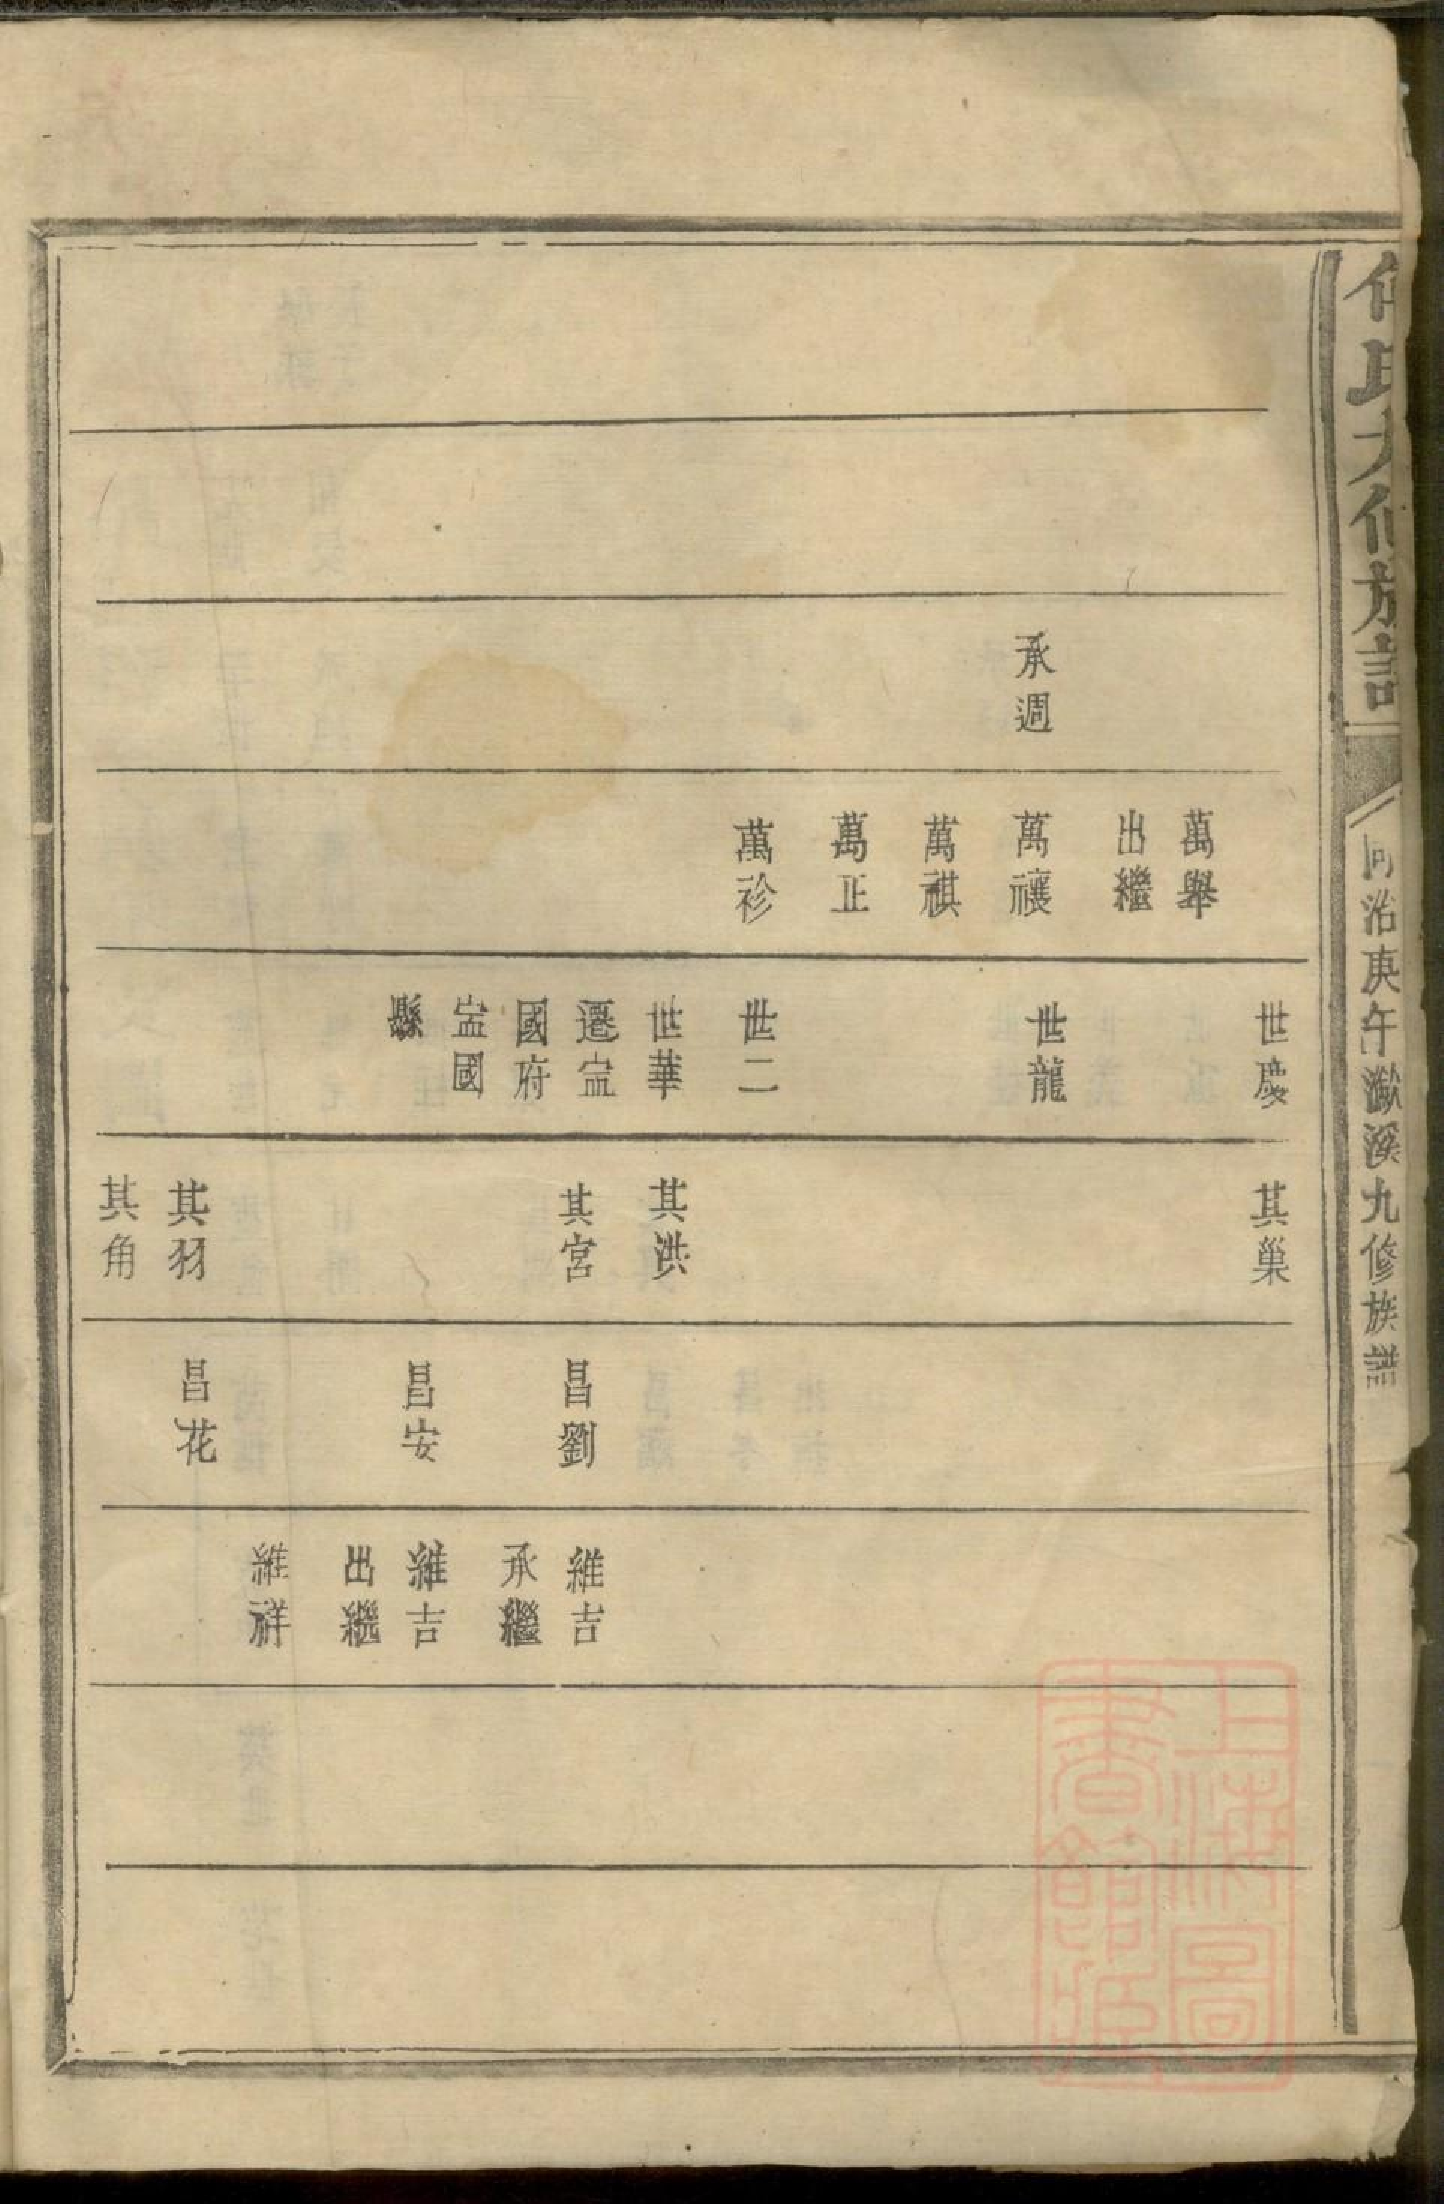 氏
族
治庚午瀫溪九修族譜
承週
萬舉
出繼
萬禳
萬祺
萬正
萬袗
世慶
世龍
世二
世華
遷寍
國府
寍國
縣
其巢
其洪
其宮
其羽
其角
昌劉
昌安
昌花
維吉
承繼
維吉
出繼
維祥
上海圖
書館藏